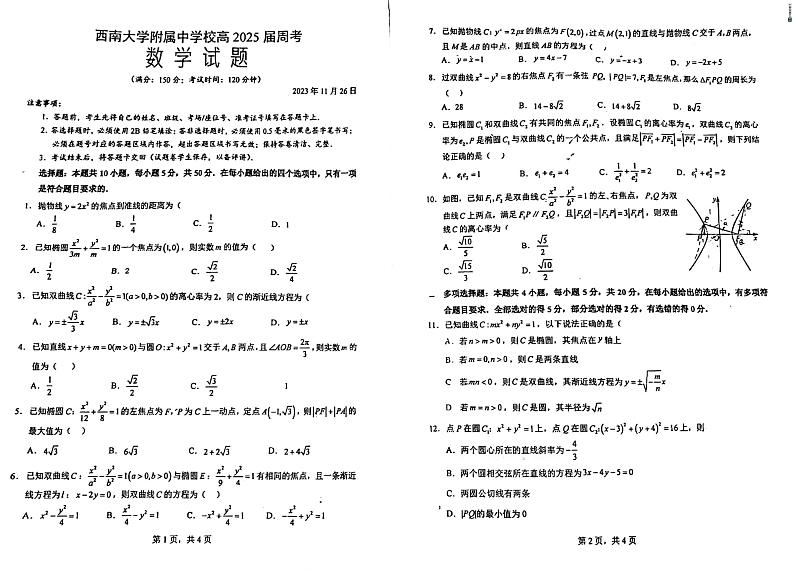 西南大学附属中学校高 2025 届周考
数 学 试 题
(满分：150 分；考试时间：120 分钟)
2023 年 11 月 26 日
注意事项：
1. 答题前，考生先将自己的姓名、班级、考场/座位号、准考证号填写在答题卡上.
2. 答选择题时，必须使用 2B 铅笔填涂；答非选择题时，必须使用 0.5 毫米的黑色签字笔书写；
必须在题号对应的答题区域内作答，超出答题区域书写无效；保持答卷清洁、完整.
3. 考试结束后，将答题卡交回（试题卷学生保存，以备评讲）.
一、选择题：本题共 10 小题，每小题 5 分，共 50 分．在每小题给出的四个选项中，只有一项
是符合题目要求的．
1. 抛物线 y = 2x² 的焦点到准线的距离为（ ）
A. 1/8 B. 1/4 C. 1/2 D. 1
2. 已知椭圆 x²/3m + y²/m = 1 的一个焦点为 (1,0)，则实数 m 的值为（ ）
A. 1/2 B. 2 C. √2/2 D. √2/4
3. 已知双曲线 C: x²/a² − y²/b² = 1(a>0,b>0) 的离心率为 2，则 C 的渐近线方程为（ ）
A. y = ±√3/3 x B. y = ±√3x C. y = ±2x D. y = ±x
4. 已知直线 x + y + m = 0(m>0) 与圆 O: x² + y² = 1 交于 A, B 两点，且 ∠AOB = 2π/3，则实数 m 的
值为（ ）
A. 1/2 B. √2/2 C. √3/2 1
5. 已知椭圆 C: x²/12 + y²/8 = 1 的左焦点为 F，P 为 C 上一动点，定点 A(−1,√3)，则 |PF| + |PA| 的
最大值为（ ）
A. 4√3 B. 6√3 C. 2+2√3 D. 2+4√3
6. 已知双曲线 C: x²/a² − y²/b² = 1(a>0,b>0) 与椭圆 E: x²/9 + y²/4 = 1 有相同的焦点，且一条渐近
线方程为 l: x − 2y = 0，则双曲线 C 的方程为（ ）
A. x² − y²/4 = 1 B. x²/4 − y² = 1 C. −x² + y²/4 = 1 D. −x²/4 + y² = 1
第 1 页，共 4 页
7. 已知抛物线 C: y² = 2px 的焦点为 F(2,0)，过点 M(2,1) 的直线与抛物线 C 交于 A, B 两点，
且 M 是 AB 的中点，则直线 AB 的方程为（ ）
A. y = x − 1 B. y = 4x − 7 C. y = −x + 3 D. y = −2x + 5
8. 过双曲线 x² − y² = 8 的右焦点 F₂ 有一条弦 PQ，|PQ| = 7，F₁ 是左焦点，那么 △F₁PQ 的周长为
（ ）
A. 28 B. 14 − 8√2 C. 14 + 8√2 D. 8√2
9. 已知椭圆 C₁ 和双曲线 C₂ 有共同的焦点 F₁, F₂，设椭圆 C₁ 的离心率为 e₁，双曲线 C₂ 的离心
率为 e₂，P 是椭圆 C₁ 与双曲线 C₂ 的一个公共点，且满足 |PF₁ + PF₂| = |PF₁ − PF₂|，则下列结
论正确的是（ ）
A. e₁e₂ = 1 B. e₁ + e₂ = 4 C. 1/e₁² + 1/e₂² = 2 D. e₁² + e₂² = 2
10. 如图，已知 F₁, F₂ 是双曲线 C: x²/a² − y²/b² = 1 的左、右焦点，P, Q 为双
曲线 C 上两点，满足 F₁P // F₂Q，且 |F₂Q| = |F₂P| = 3|F₁P|，则双曲
线 C 的离心率为（
A. √10/5 B. √5/2
C. √15/3 D. √10/2
二、多项选择题：本题共 4 小题，每小题 5 分，共 20 分，在每小题给出的选项中，有多项符
合题目要求．全部选对的得 5 分，部分选对的得 2 分，有选错的得 0 分．
11. 已知曲线 C: mx² + ny² = 1，以下说法正确的是（
A. 若 n > m > 0，则 C 是椭圆，其焦点在 y 轴上
B. 若 m = 0, n > 0，则 C 是两条直线
C 若 mn < 0，则 C 是双曲线，其渐近线方程为 y = ±√(−m/n) x
D 若 m = n > 0，则 C 是圆，其半径为 √n
12. 点 P 在圆 C₁: x² + y² = 1 上，点 Q 在圆 C₂: (x−3)² + (y+4)² = 16 上，则
A. 两个圆心所在的直线斜率为 −4/3
B. 两个圆相交弦所在直线的方程为 3x − 4y − 5 = 0
C. 两圆公切线有两条
D. |PQ| 的最小值为 0
第 2 页，共 4 页